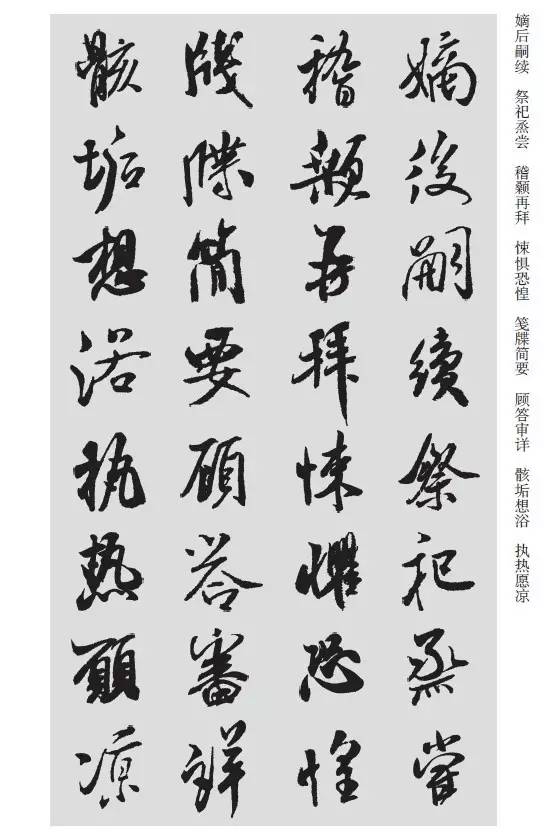 嫡后嗣续 祭祀烝尝 稽颡再拜 悚惧恐惶 笺牒简要 顾答审详 骸垢想浴 执热愿凉
嫡後嗣續祭祀烝嘗
稽顙再拜悚懼恐惶
牋牒簡要顧答審詳
骸垢想浴執熱願凉